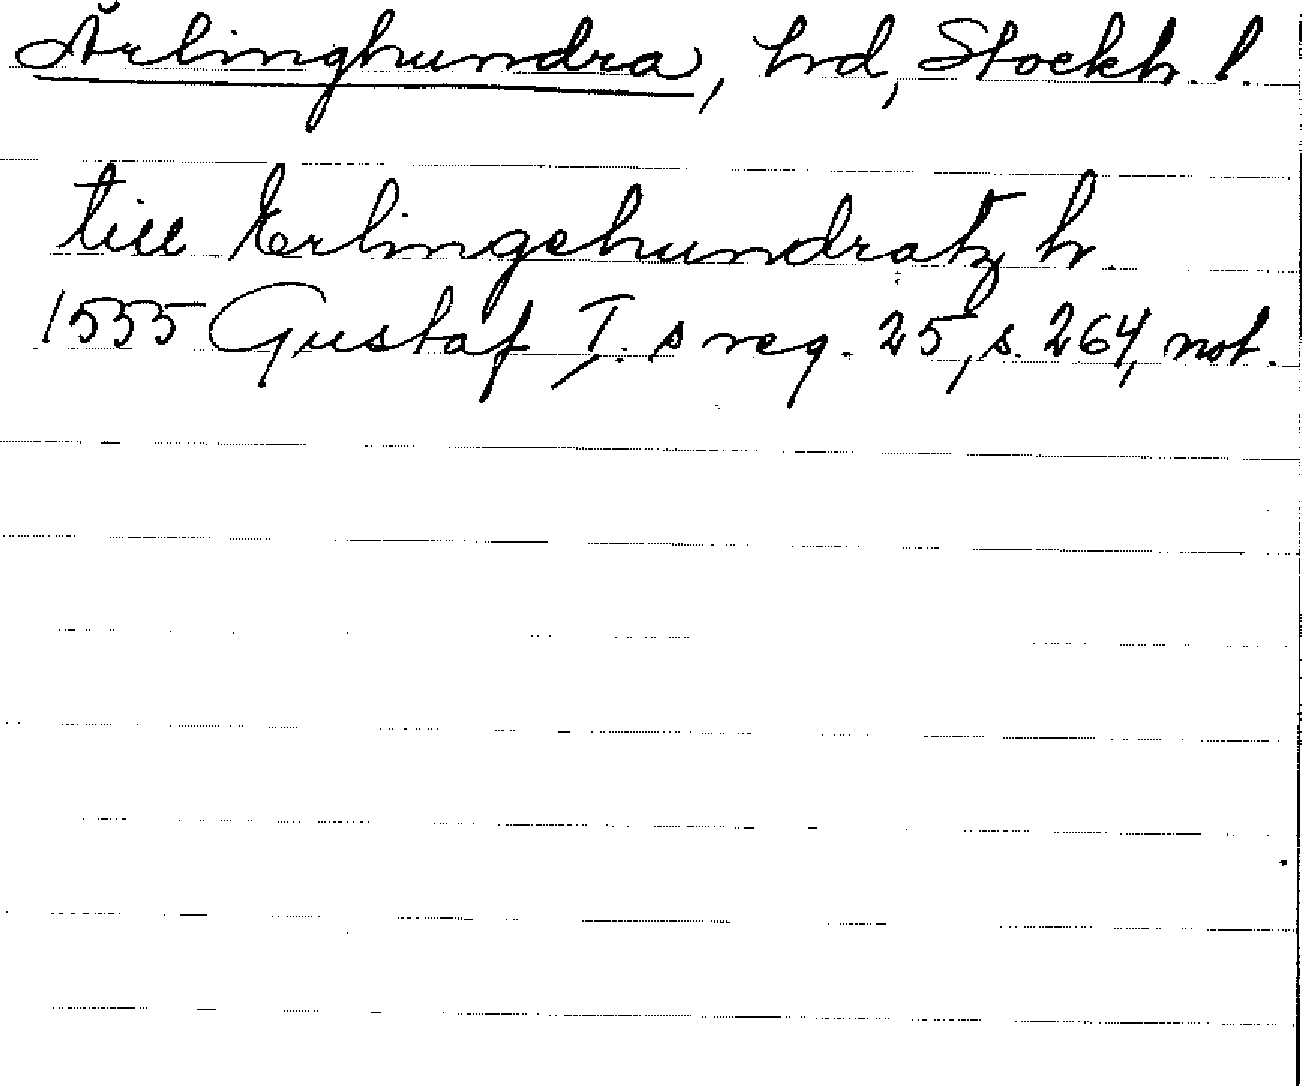 Ärlinghundra, hrd, Stockh. l.
till Erlingehundratz h.
1555 Gustaf I. s reg. 25, s. 264, not.